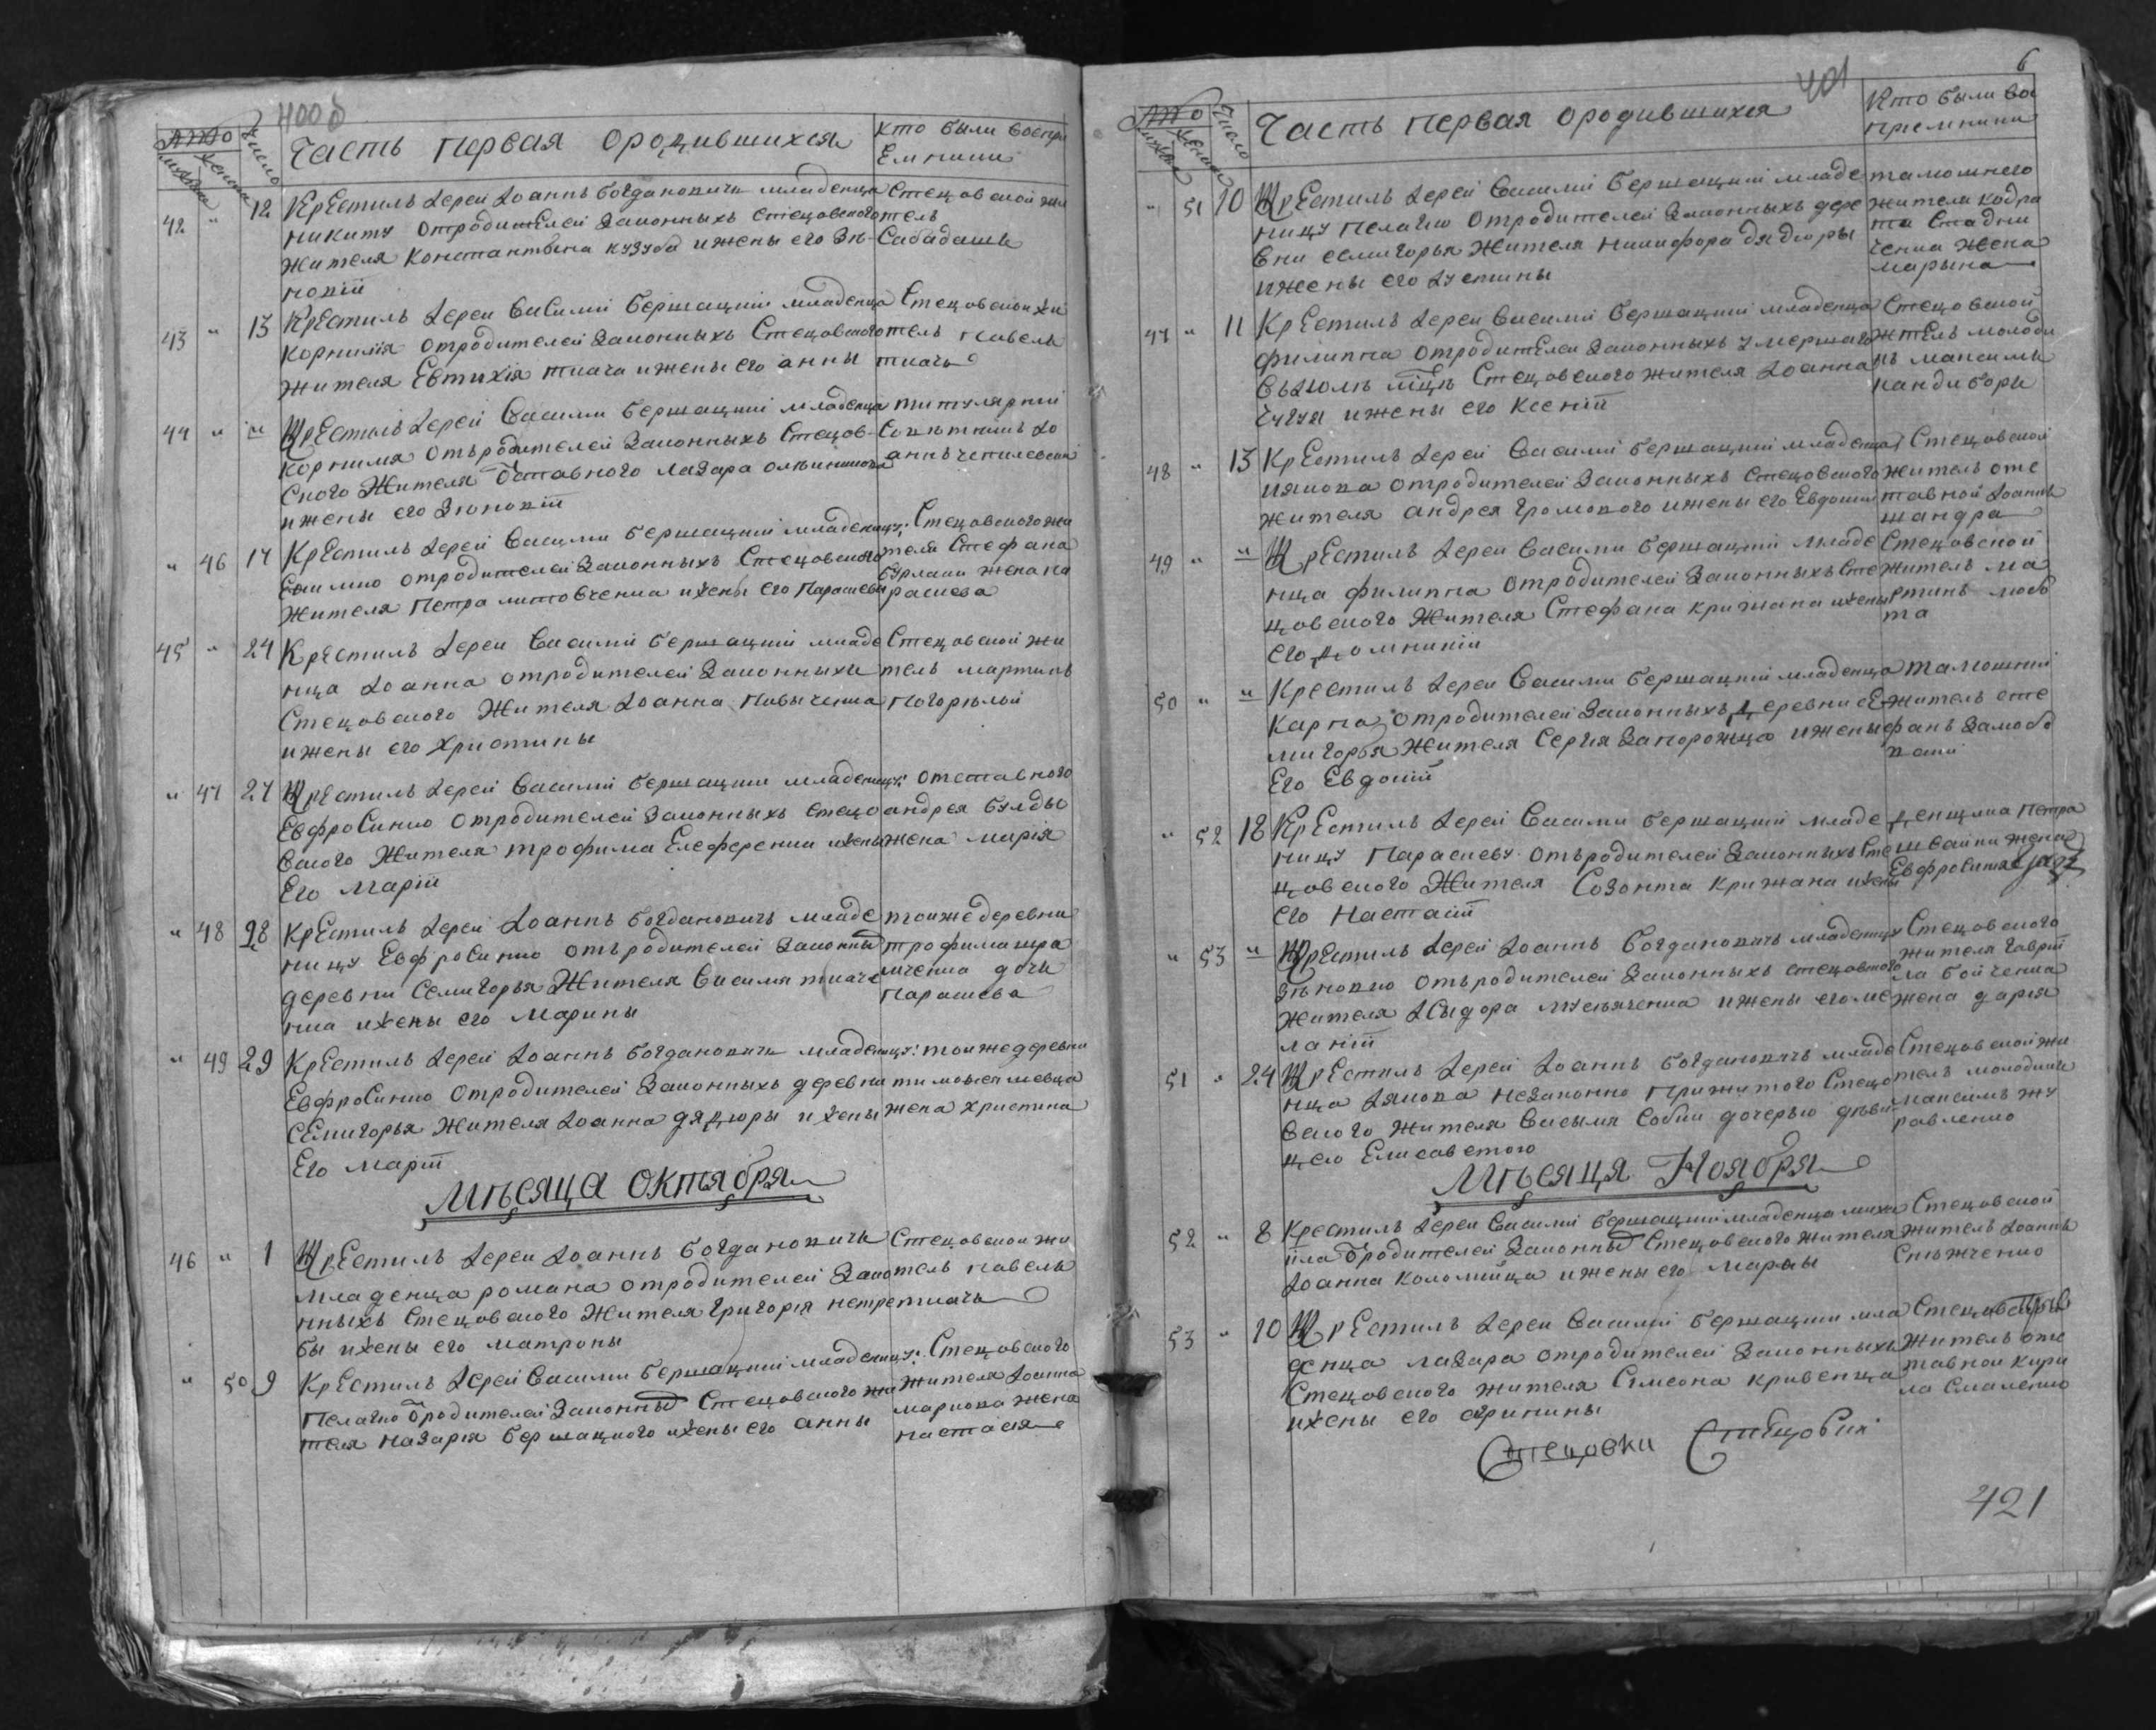 400б
Число
Часть первая ородившихся
Кто были воспри
Емники
42 " 12 Крестилъ Іерей Іоаннъ Богдановичъ младенца
Никиту отродителей Законныхъ стецовского
жителя Константына кузуба ижены его Зѣ-
новіи
Стецовской жи
тель
Сабадашъ
43 " 13 Крестилъ Іерей Василий Бершацкий младенца
Корнилія отродителей Законныхъ Стецовского
жителя Евтихія ткача ижены его анны
Стецовской жи
тель павелъ
ткачъ
44 " " Крестилъ Іерей Василий Бершацкий младенца
Корнилия отъродителей Законныхъ Стецов-
ского Жителя Отставного Лазара
ижены его Зѣновіи
титулярний
Совѣтникъ Іо
аннъ
" 46 17 Крестилъ Іерей Василий Бершацкий младеницу:
отродителей Законныхъ Стецовского
жителя Петра литовченка ижены его Параскеви
Стецовского жи
теля Стефана
бурлаки жена па
расковa
45 " 24 Крестилъ Іерей Василий Бершацкий младе
нца Іоанна отродителей Законныхъ
Стецовского Жителя Іоанна
ижены его Христины
Стецовской жи
тель мартинъ
погорѣлой
" 47 27 Крестилъ Іерей Василий Бершацкий младеницу:
Евфросинию отродителей Законныхъ стецо
вского Жителя трофима Елеференка ижены
Его Маріи
отставного
андрея булды
жена марія
" 48 28 Крестилъ Іерей Іоаннъ Богдановичъ младе
ницу Евфросинию отъродителей Законны
деревни Семигорья Жителя Василия ткаче
нка ижены его Марины
тоижедеревни
трофима
мченка дочь
параскева
" 49 29 Крестилъ Іерей Іоаннъ Богдановичъ младеницу:
Евфросинию отродителей Законныхъ деревни
сЕмигорья Жителя Іоанна дядюры ижены
Его маріи
тоижедеревни
жена христина
Мѣсяца Октября
46 " 1 Крестилъ Іерей Іоаннъ Богдановичъ
младенца романа отродителей Зако
нныхъ Стецовского Жителя Григорія нетре
бы ижены его матроны
Стецовской жи
тель павелъ
ткачъ
" 50 9 Крестилъ Іерей Василий Бершацкий младеницу:
Пелагию Ородителей Законны Стецовского жи
теля назарія бершацкого ижены его анны
Стецовского
жителя Іоанна
марковa жена
настасия
401
6
Число
Часть первая ородившихся
Кто были вос
приемники
" 51 10 Крестилъ Іерей Василий Бершацкий младе
ницу пелагию отродителей Законныхъ дере
вни семигорья Жителя никифора дядюры
ижены его Іустины
тамошнего
жителя кодра
та стадни
ченка жена
марына
47 " 11 Крестилъ Іерей Василий Бершацкий младенца
филиппа отродителей Законныхъ умершаго
въ Іюлѣ мцѣ Стецовского жителя Іоанна
Чугуя ижены его Ксеніи
Стецовской
житель молоди
къ максимъ
кандибора
48 " 13 Крестилъ Іерей Василий Бершацкий младенца
Іякова отродителей Законныхъ стецовского
жителя андрея громового ижены его Евдокии
Стецовской
житель отс
тавной Іоаннъ
шандра
49 " " Крестилъ Іерей Василий Бершацкий младе
нца филиппа отродителей Законныхъ Сте
цовского Жителя Стефана крижана ижены
его домникіи
Стецовской
житель ма
ртинъ
та
50 " " Крестилъ Іерей Василий Бершацкий младенца
Карпа отродителей Законныхъ деревни сЕ
мигорья жителя Сергия Запорожца ижены
Его Евдокіи
тамошний
житель сте
фанъ
" 52 18 Крестилъ Іерей Василий Бершацкий младе
ницу Параскеву отъродителей Законныхъ Сте
цовского Жителя Созонта Крижана ижены
его Настасіи
денщика петра
швайки жена
Евфросиния
" 53 " Крестилъ Іерей Іоаннъ Богдановичъ младеницу
Зѣновию отъродителей Законныхъ стецовского
жителя Ісыдора ижены его ме
ланіи
Стецовского
жителя Гаврии
ла бойченка
жена дария
51 " 24 Крестилъ Іерей Іоаннъ Богдановичъ младе
нца Іякова незаконно прижитого Стецо
вского жителя Васыля Собки дочерью дѣви
цею Елисаветою
Стецовской жи
тель молодикъ
максимъ жу
равленко
Мѣсяця Ноября
52 " 8 Крестилъ Іерей Василий Бершацкий младенца михи
йла Ородителей Законны Стецовского жителя
Іоанна коломийца ижены его марины
Стецовской
житель Іоаннъ
53 " 10 Крестилъ Іерей Василий Бершацкий мла
денца лазара отродителей Законныхъ
Стецовского жителя Симеона кривенца
ижены его акрипины
житель отс
тавной кири
ла
Стецовки Стецовки
421